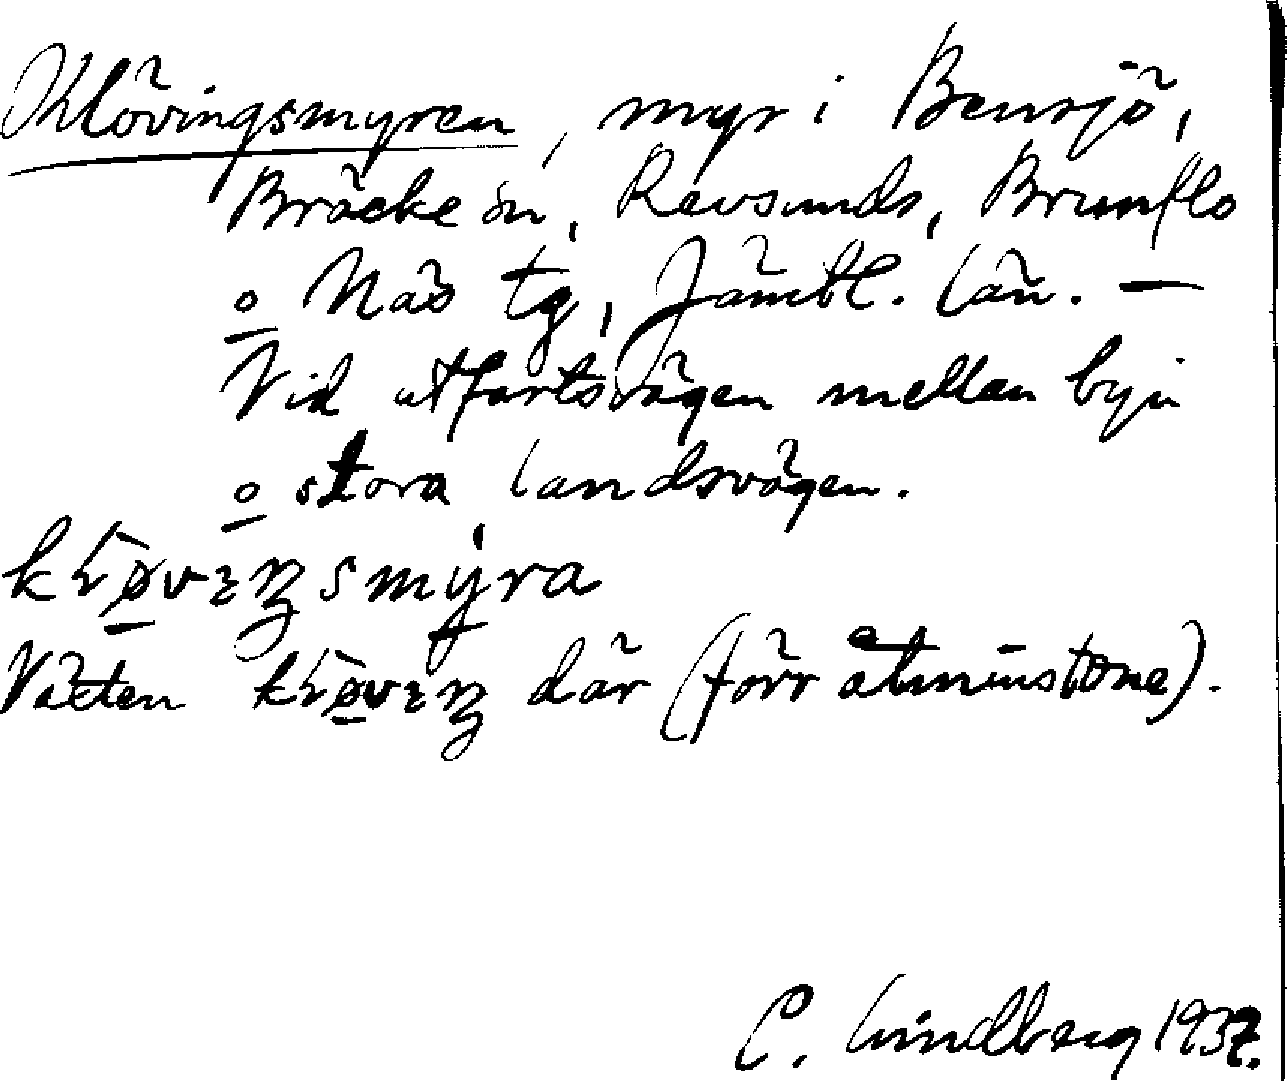 Klövingsmyren, myr i Bensjö,
Bräcke sn, Revsunds, Brunflo
o Näs tg, Jämtl. län. —
Vid utfartsvägen mellan byn
o stora landsvägen.
kḷøvıŋsmýra
Växten kḷøvıŋ där (förr åtminstone).
C. Lindberg 1937.